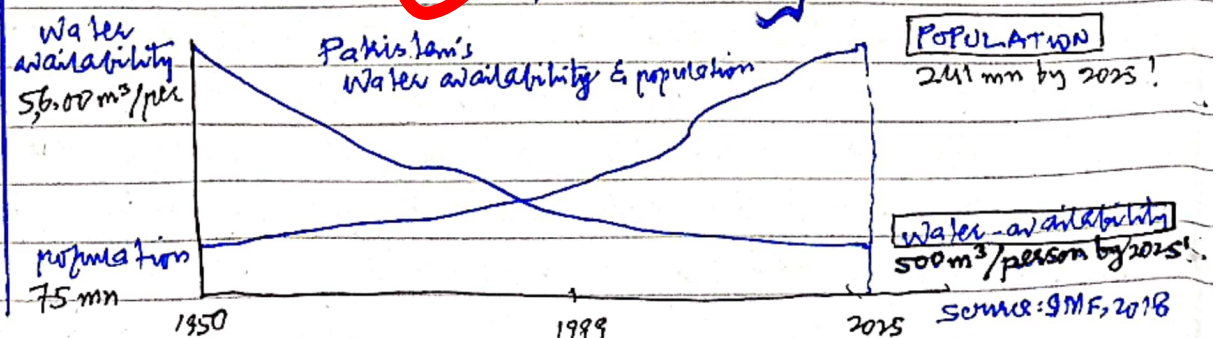 Water
availability
5,6.00 m³/per
Pakistan's
Water availability & population
POPULATION
241 mn by 2025!
population
75 mn
Water-availability
500 m³/person by 2025!
1950
1989
2025
Source: IMF, 2018